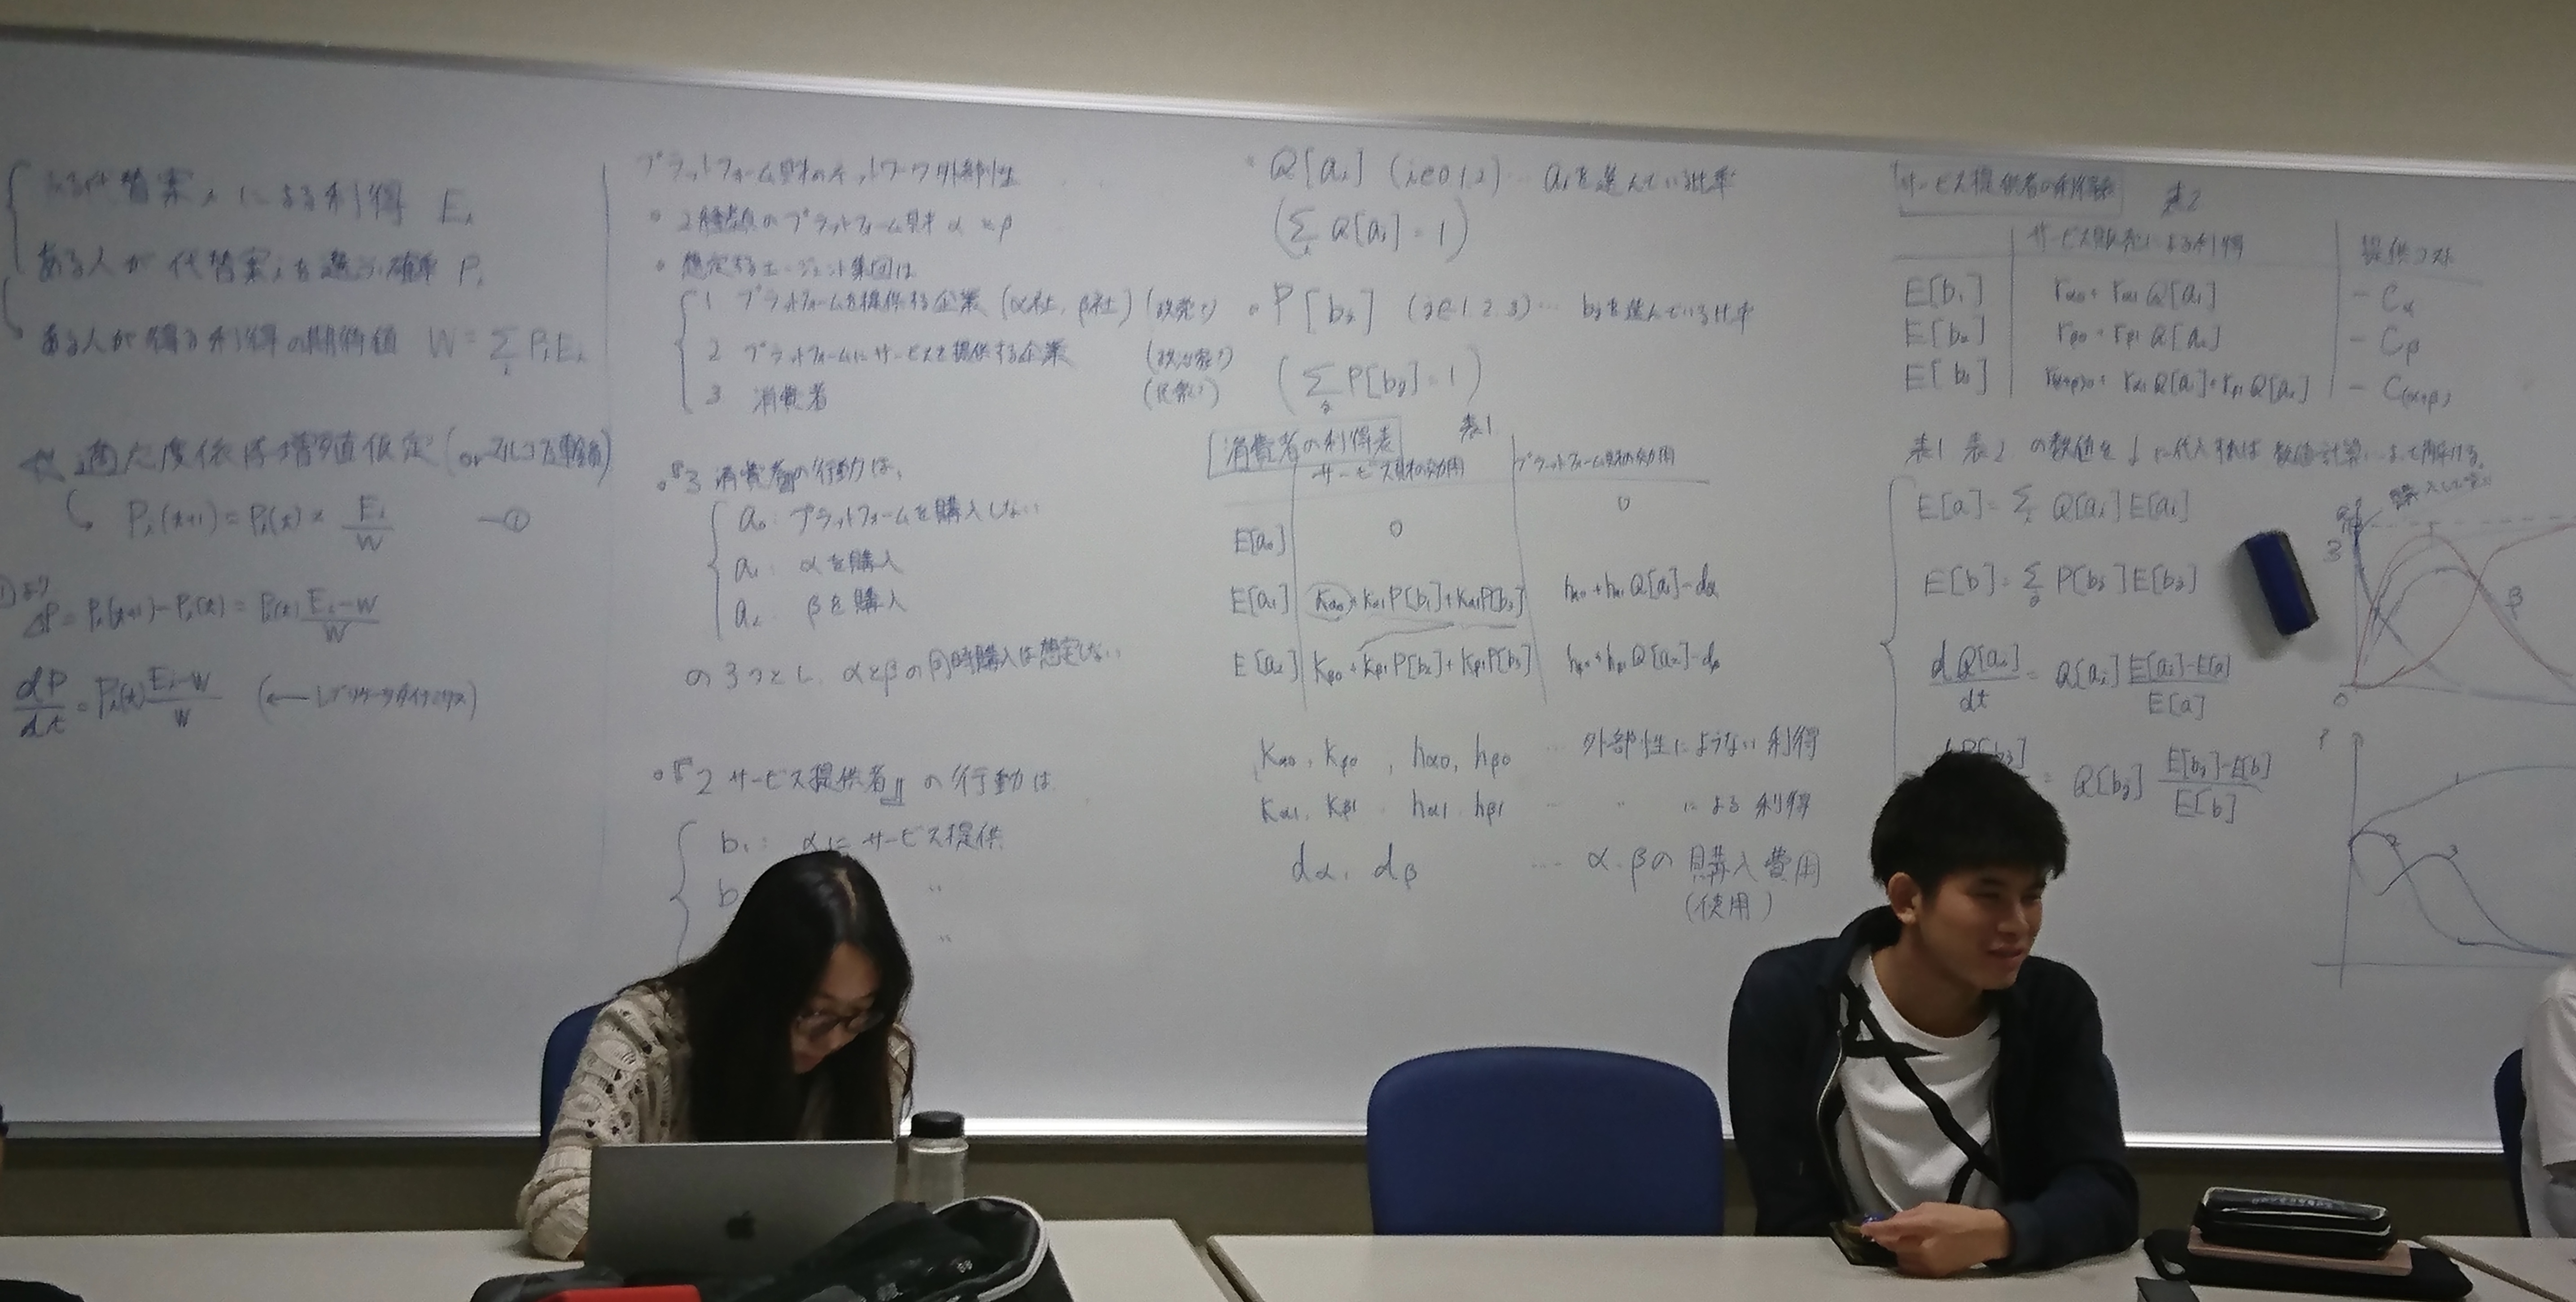 代替案iによる利得 Ei
ある人が代替案iを選ぶ確率 Pi
ある人が得る利得の期待値 W = Σi PiEi
適応度依存増殖仮定 (or
Pi(t+1) = Pi(t) × Ei/W —①
①より
ΔP = Pi(t+1) − Pi(t) = Pi(t) (Ei−W)/W
dP/dt = Pi(t) (Ei−W)/W (← レプリケータダイナミクス)
プラットフォーム財のネットワーク外部性
• 2種類のプラットフォーム財 α と β
• 想定するエージェント集団は
1 プラットフォームを提供する企業 (α社, β社) (政党?)
2 プラットフォームにサービスを提供する企業 (政治家?)
3 消費者 (民衆?)
•『3 消費者』の行動は、
a0: プラットフォームを購入しない
a1: αを購入
a2: βを購入
の3つとし、αとβの同時購入は想定しない
•『2 サービス提供者』の行動は
b1: αにサービス提供
b 〃
〃
• Q[ai] (i∈0 1 2) … aiを選んでいる比率
(Σi Q[ai] = 1)
• P[bj] (j∈1. 2. 3) … bjを選んでいる比率
(Σj P[bj] = 1)
消費者の利得表 表1
サービス財の効用 プラットフォーム財の効用
E[a0] 0 0
E[a1] kα0 + kα1P[b1] + kα1P[b3] hα0 + hα1Q[a1] − dα
E[a2] kβ0 + kβ1P[b2] + kβ1P[b3] hβ0 + hβ1Q[a2] − dβ
kα0, kβ0, hα0, hβ0 … 外部性によらない利得
kα1, kβ1, hα1, hβ1 … 〃 による利得
dα, dβ … α.βの購入費用
(使用)
サービス提供者の利得表 表2
サービス販売による利得 提供コスト
E[b1] rα0 + rα1Q[a1] − Cα
E[b2] rβ0 + rβ1Q[a2] − Cβ
E[b3] r(α+β)0 + rα1Q[a1] + rβ1Q[a2] − C(α+β)
表1 表2 の数値を↓に代入すれば 数値計算によって解ける。
E[a] = Σi Q[ai]E[ai]
E[b] = Σj P[bj]E[bj]
dQ[ai]/dt = Q[ai] (E[ai]−E[a])/E[a]
= Q[bj] (E[bj]−E[b])/E[b]
β
0
P
1
2
3